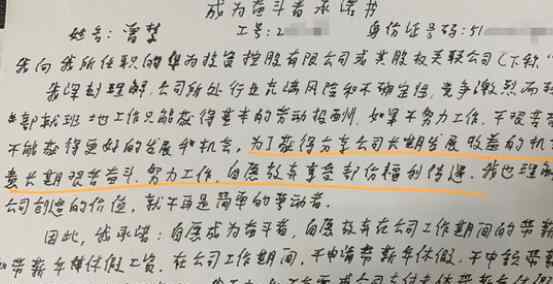 成为奋斗者承诺书
姓名：曾梦 工号：2 身份证号码：51
我向我所任职的华为投资控股有限公司或其股权关联公司（下称“
我深刻理解，公司所处行业充满风险和不确定性，竞争激烈而残
部就班地工作只能获得基本的劳动报酬，如果不努力工作，不艰苦奋
不能获得更好的发展和机会，为了获得分享公司长期发展收益的机
要长期艰苦奋斗、努力工作，自愿放弃享受部份福利待遇，我也理解
公司创造的价值，就不再是简单的劳动者。
因此，我承诺：自愿成为奋斗者，自愿放弃在公司工作期间的带薪
和带薪年休假工资，在公司工作期间，不申请带薪年休假，不申领带薪